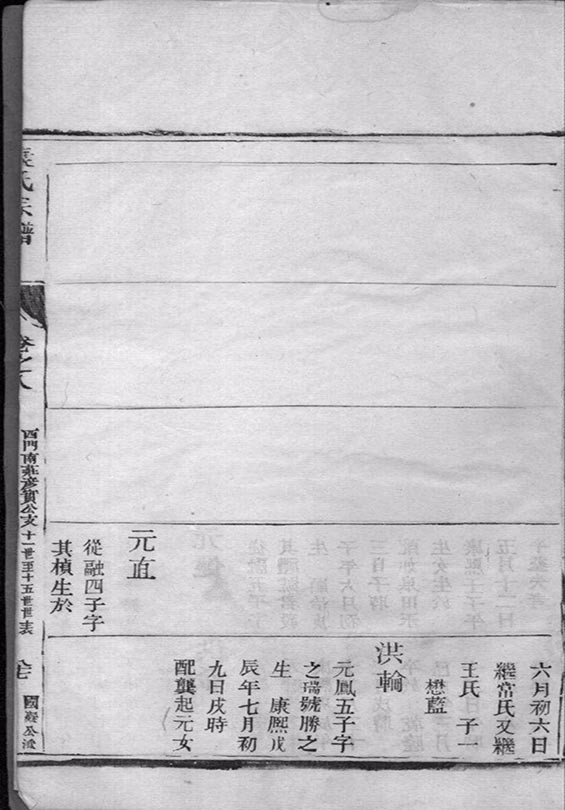 六月初六日
繼常氏又繼
王氏 子一
懋藍
洪輪
元鳳五子字
之瑞號勝之
生 康熙戊
辰年七月初
九日戌時
配龔起元女
元直
從融四子字
其楨生於
氏宗譜
卷之八
西門南莊彥賓公支十一世至十五世世表